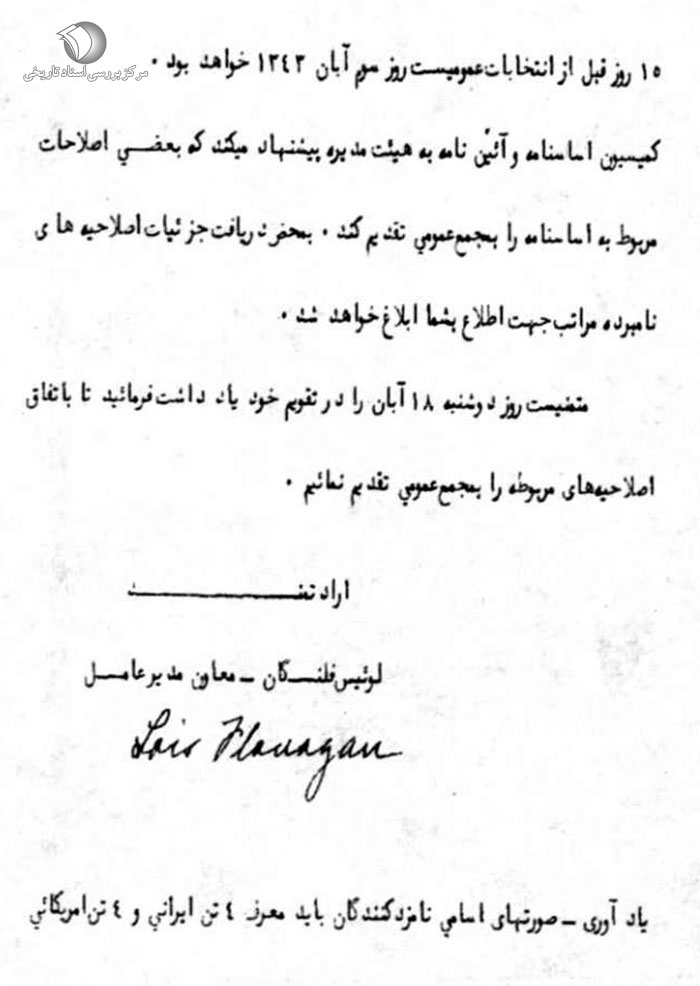 مرکز بررسی اسناد تاریخی
۱۵ روز قبل از انتخابات عمومیست روز سوم آبان ۱۳۴۳ خواهد بود ۰
کمیسیون اساسنامه و آئین نامه به هیئت مدیره پیشنهاد میکند که بعضي اصلاحات
مربوط به اساسنامه را بمجمع عمومي تقدیم کند ۰ بمحض دریافت جزئیات اصلاحیه های
نامبرده مراتب جهت اطلاع بشما ابلاغ خواهد شد ۰
متمنیست روز دوشنبه ۱۸ آبان را در تقویم خود یاد داشت فرمائید تا باتفاق
اصلاحیه‌های مربوطه را بمجمع عمومي تقدیم نمائیم ۰
ارادتمند
لوئیس فلنگان ــ معاون مدیر عامل
Lois Flanagan
یاد آوری ــ صورتهای اسامي نامزدکنندگان باید معرف ٤ تن ایراني و ٤ تن امریکائي